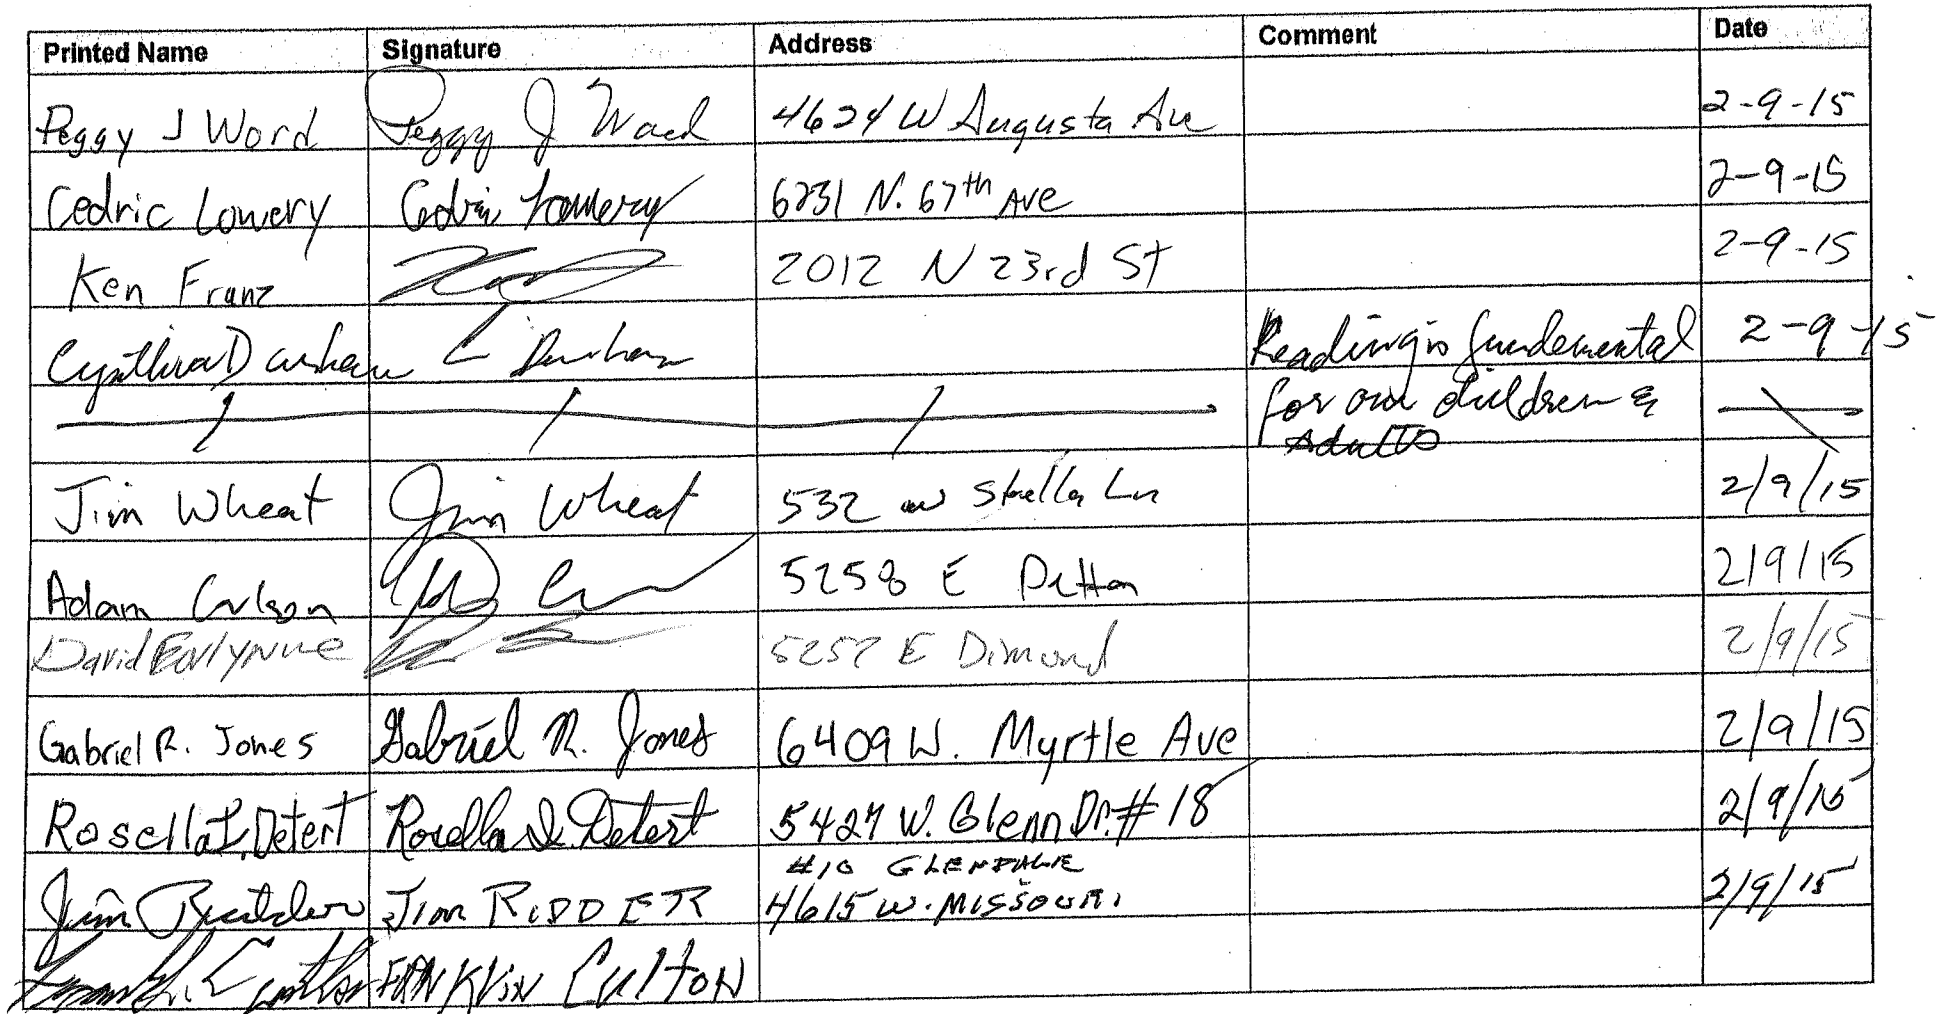 Printed Name Signature Address Comment Date
Peggy J Word Peggy J Word 4624 W Augusta Ave 2-9-15
Cedric Lowery Cedric Lowery 6231 N. 67th Ave 2-9-15
Ken Franz 2012 N 23rd St 2-9-15
Cynthia Durham C Durham Reading is fundemental 2-9-15
for our children &
Adults
Jim Wheat Jim Wheat 532 W Stella Ln 2/9/15
Adam Carlson 5258 E 2/9/15
David 5257 E Dimond 2/9/15
Gabriel R. Jones Gabriel R. Jones 6409 W. Myrtle Ave 2/9/15
Rosella I. Detert Rosella I. Detert 5427 W. Glenn Dr. # 18 2/9/15
#10 GLENDALE
Jim Ridder Jim RIDDER 4615 W. MISSOURI 2/9/15
Culton